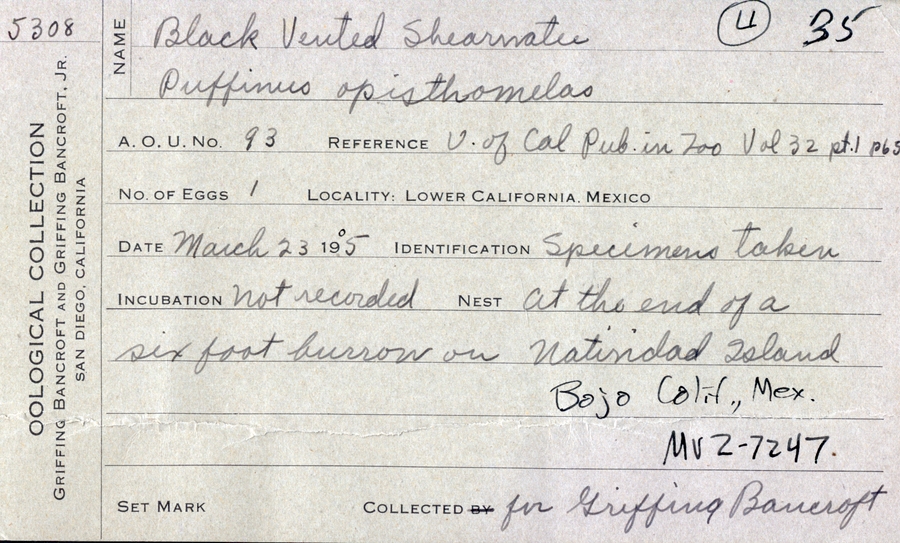 5308
OOLOGICAL COLLECTION
GRIFFING BANCROFT AND GRIFFING BANCROFT, JR.
SAN DIEGO, CALIFORNIA
4 35
NAME Black Vented Shearwater
Puffinus opisthomelas
A. O. U. No. 93 REFERENCE U. of Cal Pub. in Zoo Vol 32 pt.1 p65
No. of EGGS 1 LOCALITY: LOWER CALIFORNIA. MEXICO
DATE March 23 1905 IDENTIFICATION Specimens taken
INCUBATION not recorded NEST at the end of a
six foot burrow on Natividad Island
Bojo Calif., Mex.
MVZ-7247.
SET MARK COLLECTED BY for Griffing Bancroft